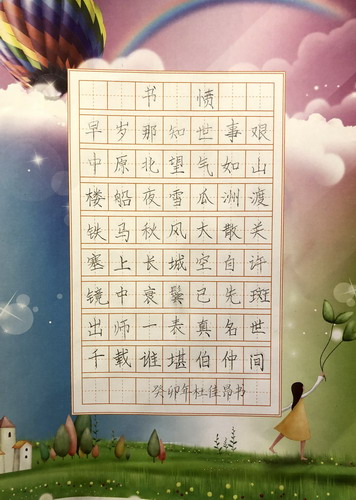 书愤
早岁那知世事艰
中原北望气如山
楼船夜雪瓜洲渡
铁马秋风大散关
塞上长城空自许
镜中衰鬓已先斑
出师一表真名世
千载谁堪伯仲间
癸卯年杜佳昂书